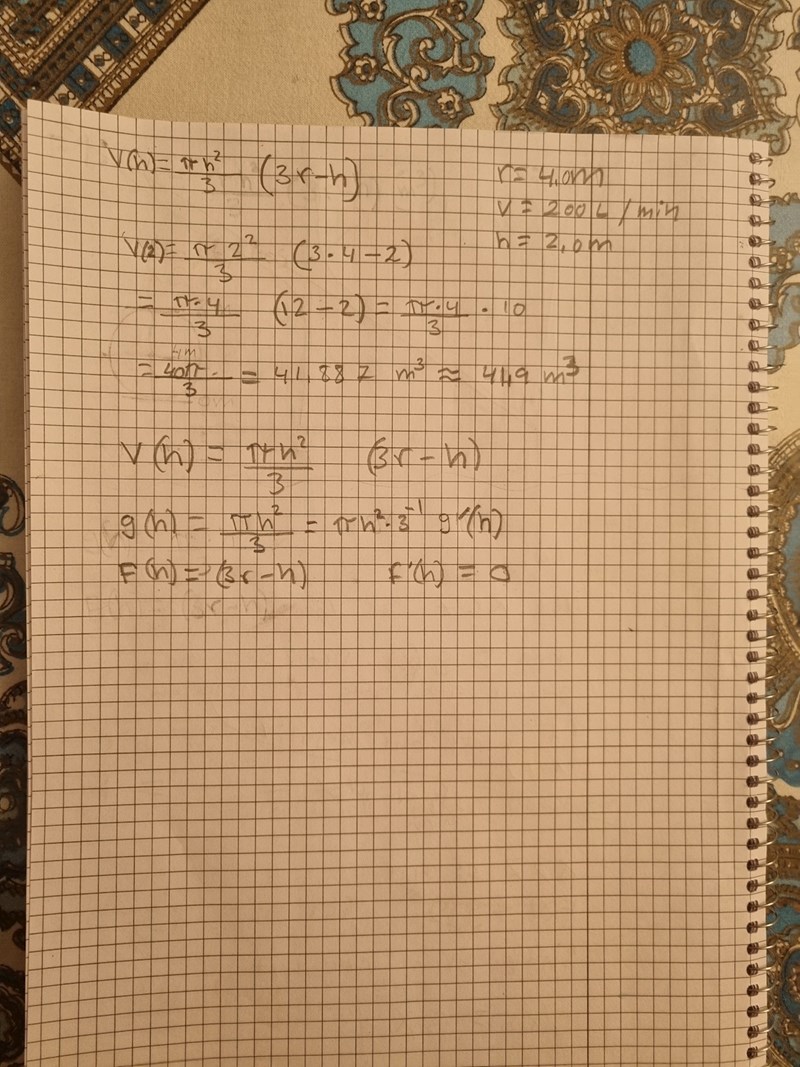 V(h) = πh²/3 (3r-h)
r = 4,0m
V = 200 L/min
h = 2,0m
V(2) = π 2²/3 (3·4-2)
= π·4/3 (12-2) = π·4/3 · 10
= 40π/3 = 41,887 m³ ≈ 41,9 m³
V(h) = πh²/3 (3r-h)
g(h) = πh²/3 = πh²·3⁻¹ g'(h)
F(h) = (3r-h) F'(h) = 0